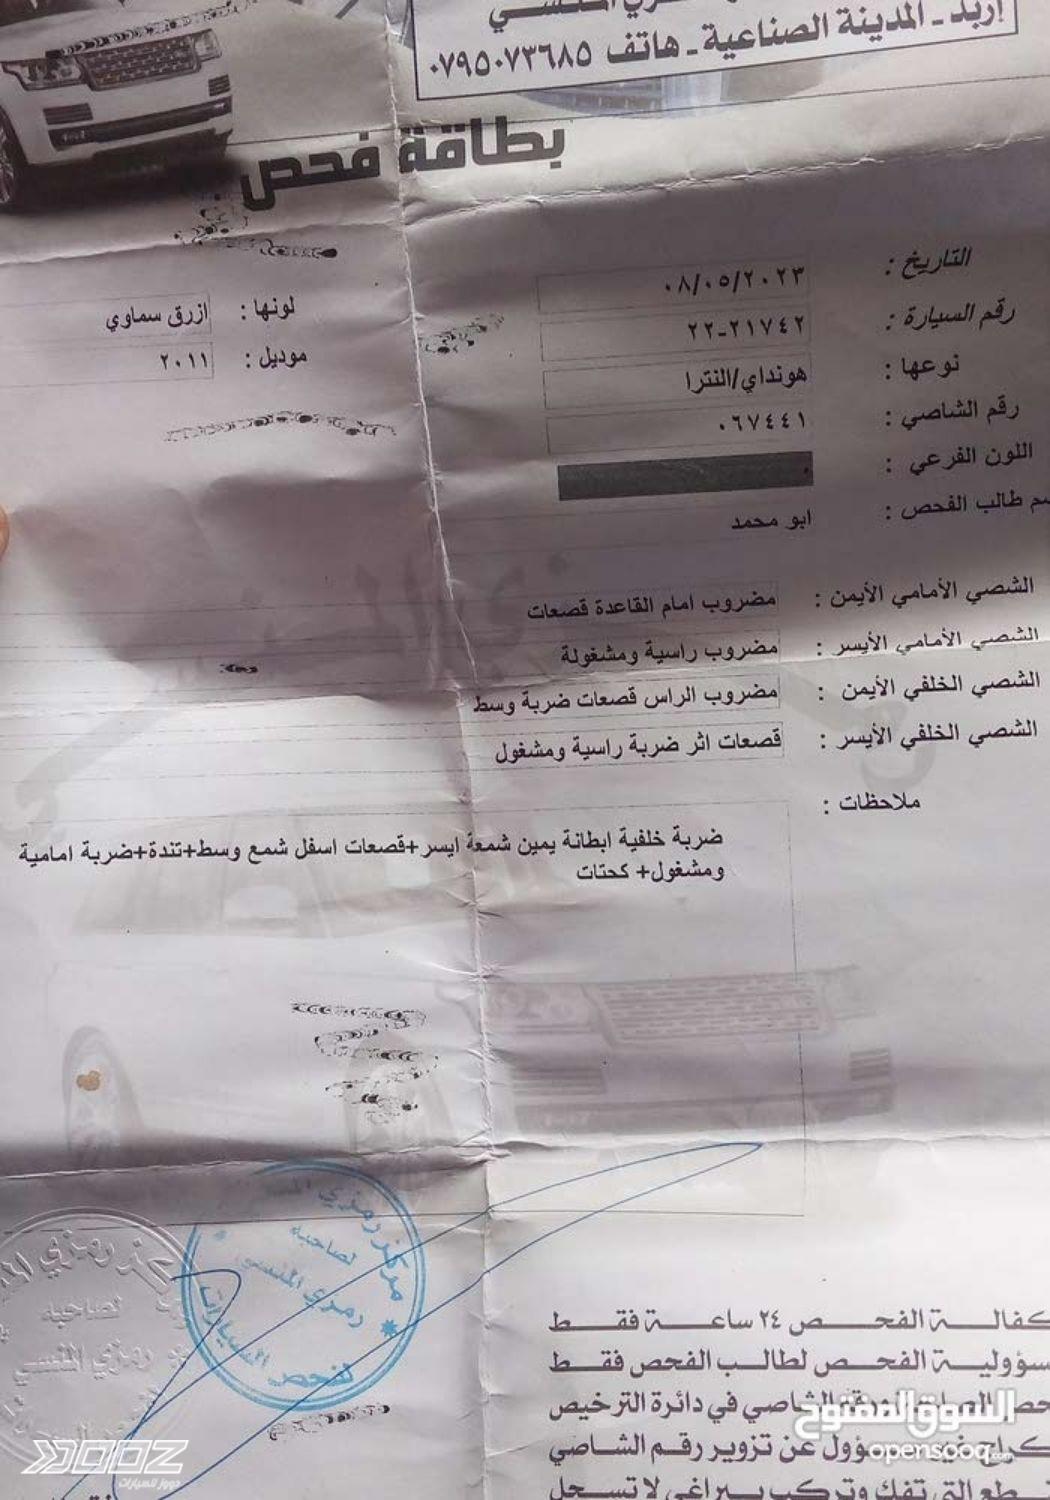 إربد - المدينة الصناعية - هاتف ٠٧٩٥٠٧٣٦٨٥
بطاقة فحص
التاريخ : ٠٨/٠٥/٢٠٢٣
رقم السيارة : ٢٢-٢١٧٤٢
لونها : ازرق سماوي
نوعها : هونداي/النترا
موديل : ٢٠١١
رقم الشاصي : ٠٦٧٤٤١
اللون الفرعي :
سم طالب الفحص : ابو محمد
الشصي الأمامي الأيمن : مضروب امام القاعدة قصعات
الشصي الأمامي الأيسر : مضروب راسية ومشغولة
الشصي الخلفي الأيمن : مضروب الراس قصعات ضربة وسط
الشصي الخلفي الأيسر : قصعات اثر ضربة راسية ومشغول
ملاحظات :
ضربة خلفية ابطانة يمين شمعة ايسر+قصعات اسفل شمع وسط+تندة+ضربة امامية
ومشغول+ كحتات
مركز رمزي
لصاحبه
رمزي المنسي
لفحص السيارات
لصاحبه
رمزي المنسي
كفالة الفحص ٢٤ ساعة فقط
سؤولية الفحص لطالب الفحص فقط
الشاصي في دائرة الترخيص
ؤول عن تزوير رقم الشاصي
طع التي تفك وتركب ببراغي لا تسجل
السوق المفتوح
opensooq.com
DOOZ
دووز للسيارات